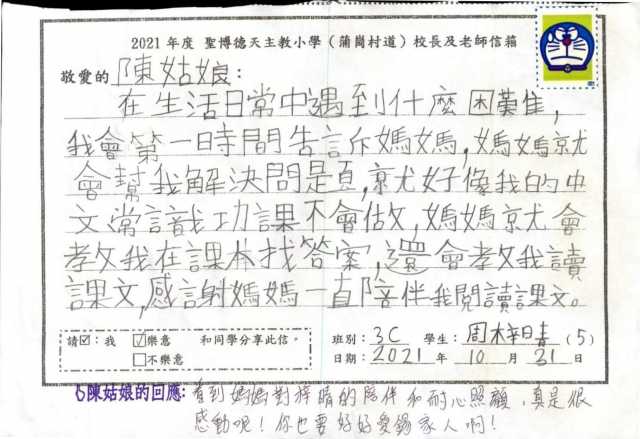 2021年度 聖博德天主教小學（蒲崗村道）校長及老師信箱
敬愛的 陳姑娘：
在生活日常中遇到什麼困難，
我會第一時間告訴媽媽，媽媽就
會幫我解決問題，就好像我的中
文常識功課不會做，媽媽就會
教我在課本找答案，還會教我讀
課文，感謝媽媽一直陪伴我閱讀課文。
請☑：我 ☑樂意 和同學分享此信。 班別：3C 學生：周梓晴 (5)
□不樂意 日期：2021 年 10 月 31 日
陳姑娘的回應：看到媽媽對梓晴的陪伴和耐心照顧，真是很
感動呢！你也要好好愛錫家人啊！